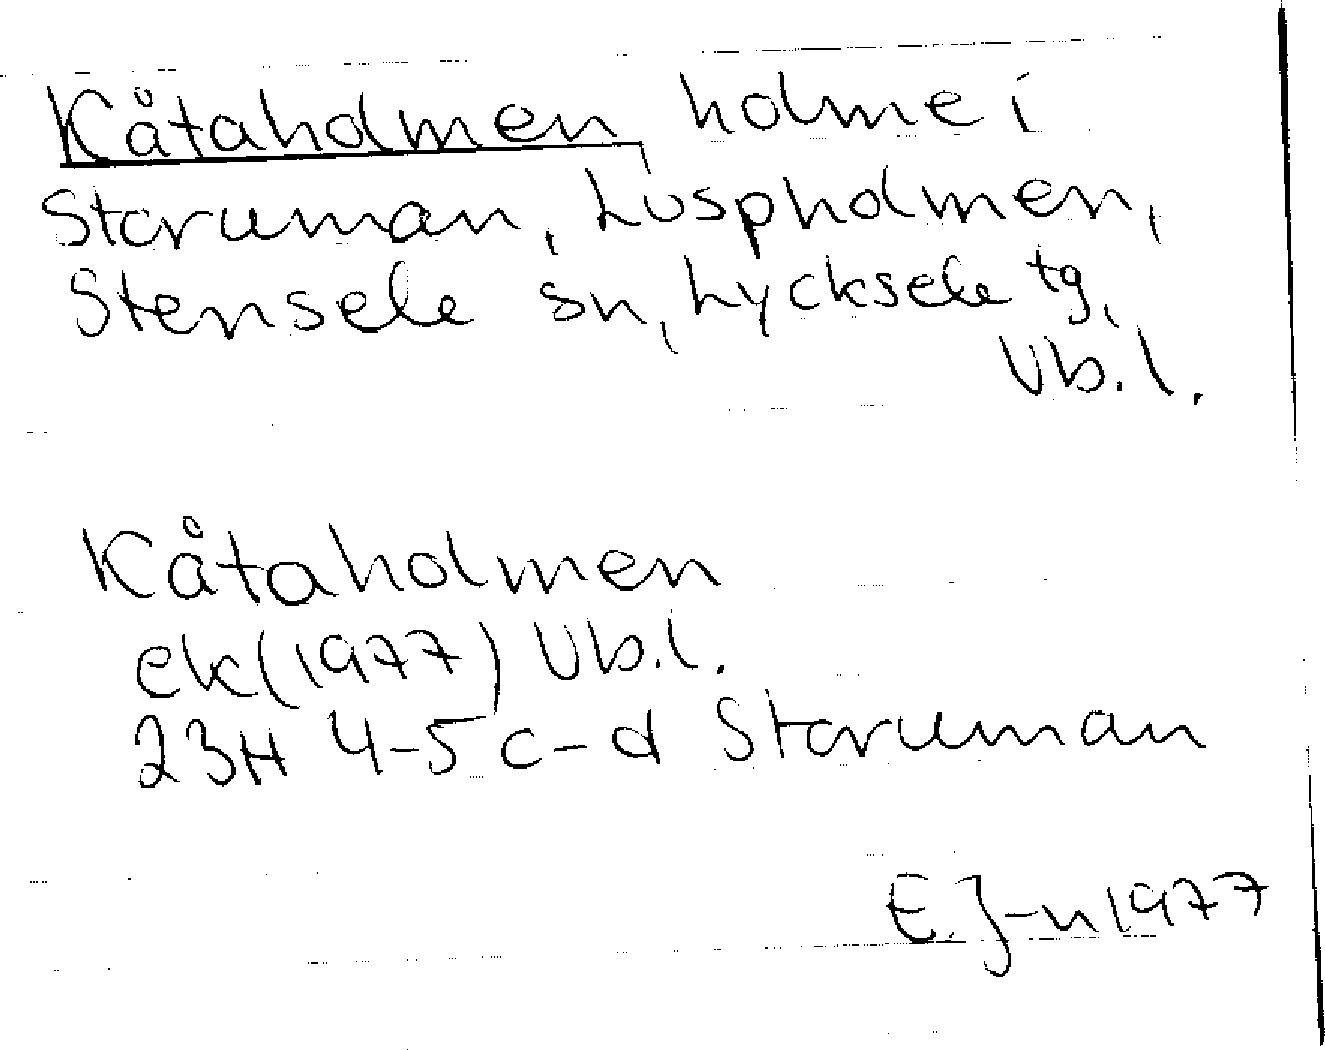 Kåtaholmen, holme i
Storuman, Luspholmen,
Stensele sn, Lycksele tg,
Vb.l.
Kåtaholmen
ek(1977) Vb.l.
23H 4-5 c-d Storuman
E.J-n 1977